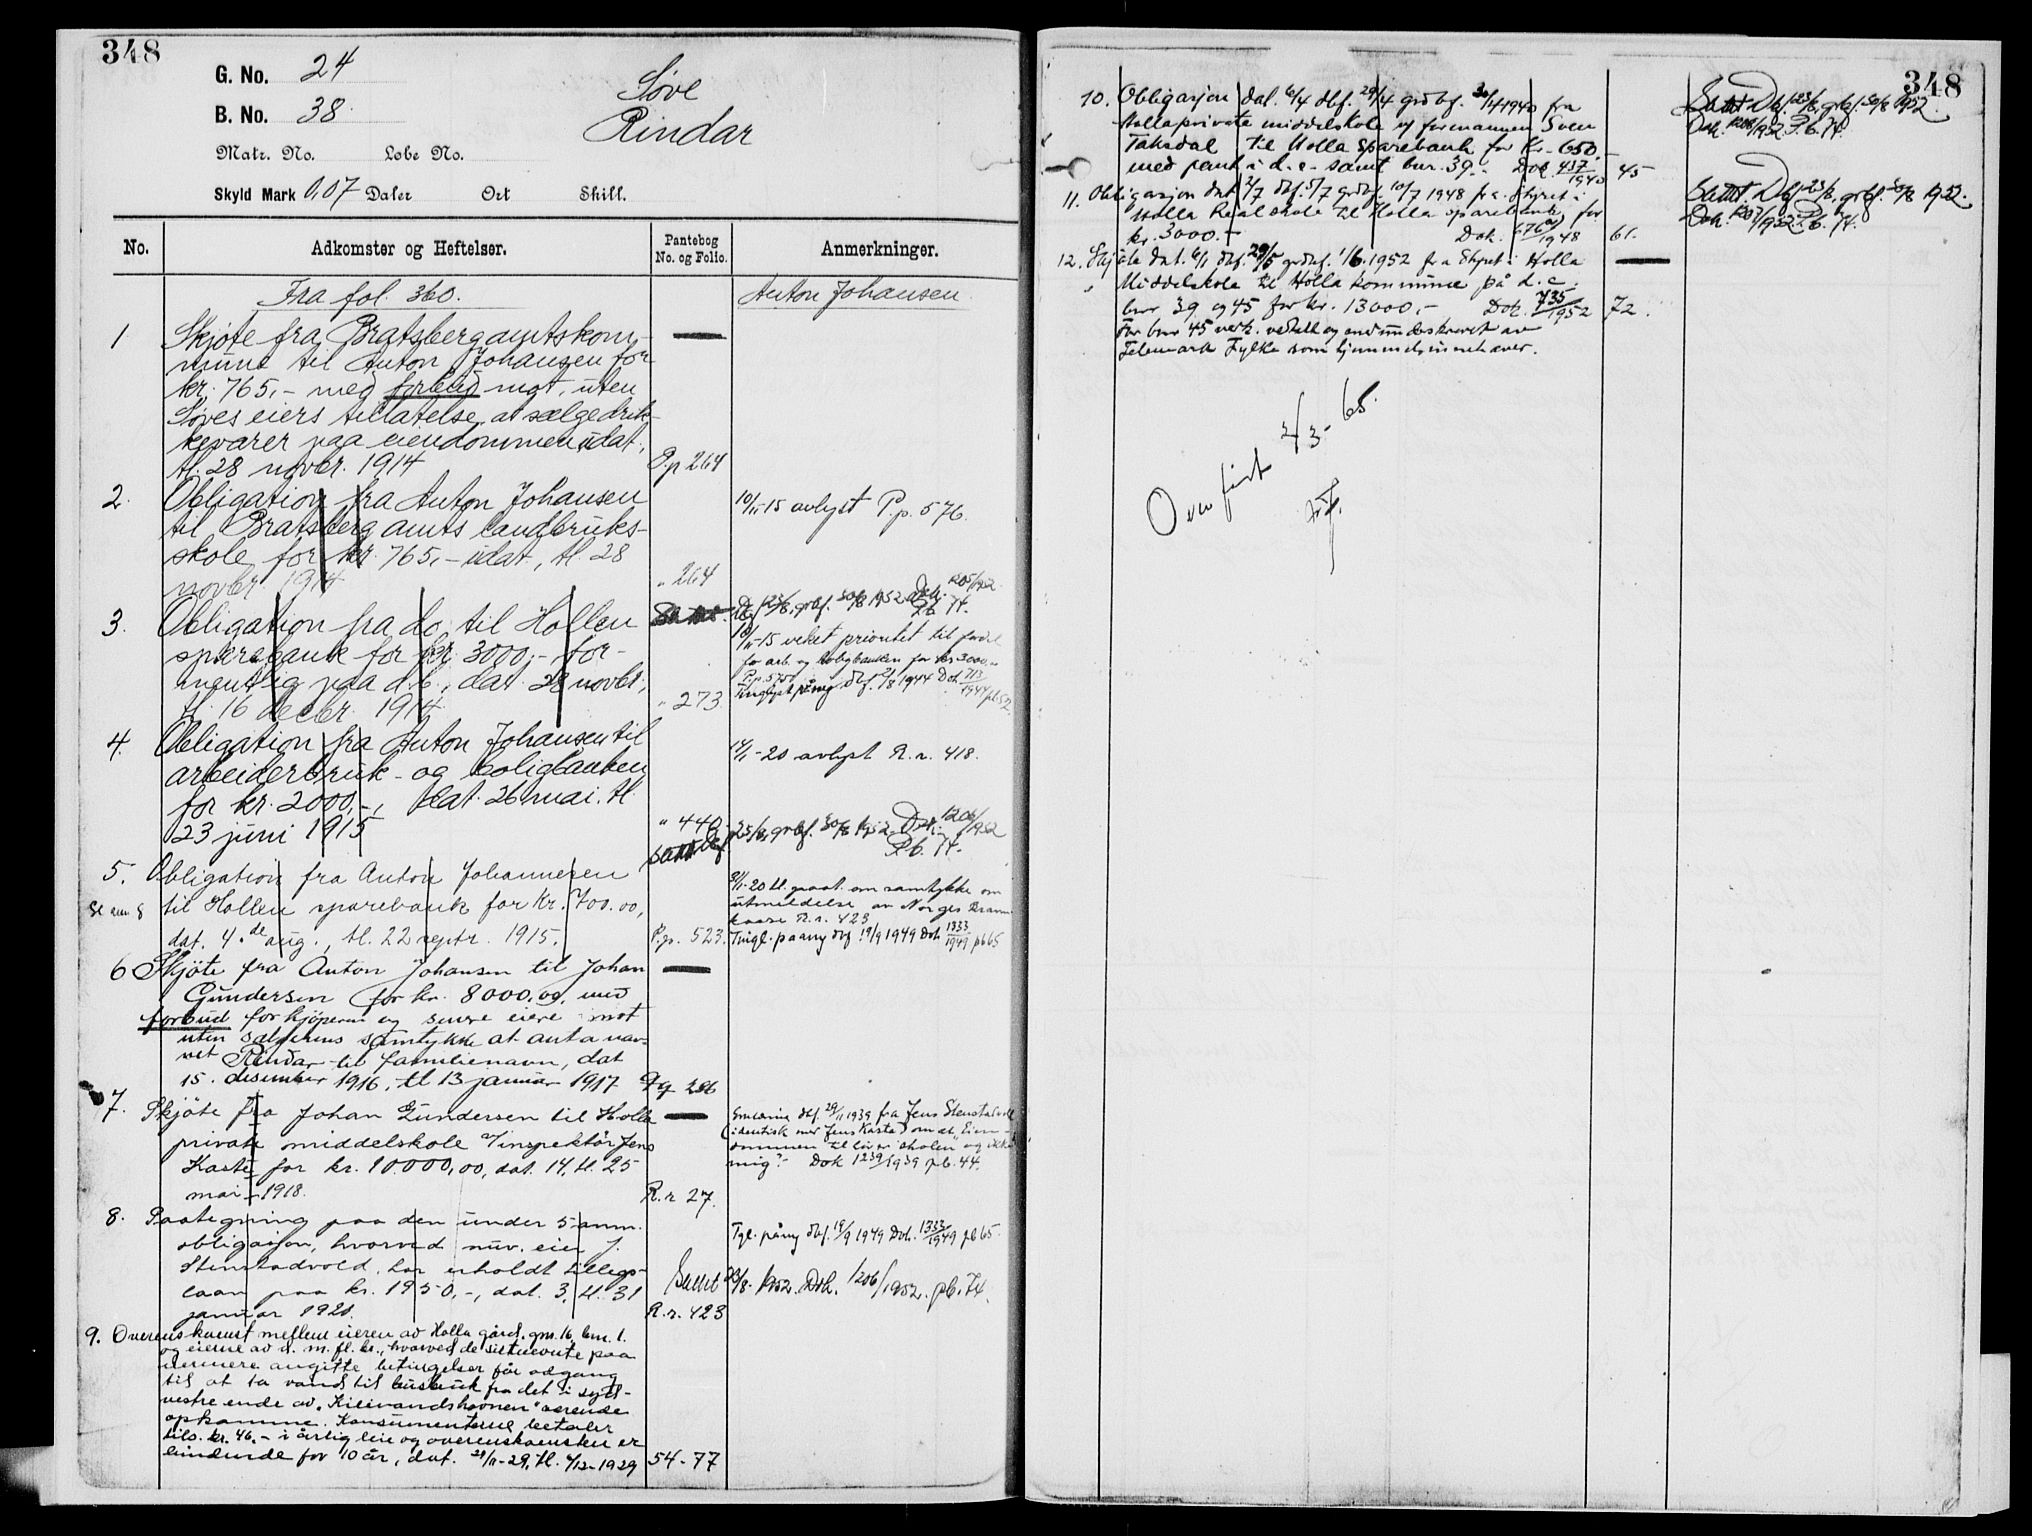 348
G. No. 24
B. No. 38.
Matr. No. Løbe No.
Skyld Mark 0,07 Daler Ort Skill.
Søve
Rindar
No. Adkomster og Heftelser. Pantebog No. og Folio. Anmerkninger.
Fra fol. 360.
Anton Johansen.
1 Skjøte fra Bratsberg amtskom-
mune til Anton Johansen for
kr. 765,- med forbud mot, uten
Søves eiers tillatelse, at sælge drik-
kevarer paa eiendommen, udat.,
tl. 28 novbr. 1914 P.p 264
2. Obligation fra Anton Johansen
til Bratsberg amts landbruks-
skole for kr. 765,- udat., tl. 28
novbr. 1914 " 264
10/11-15 avlyst P.p. 576.
3. Obligation fra do. til Hollen
sparebank for kr. 3000,- for-
mentlig paa d.b., dat. 28 novbr.,
tl. 16 decbr. 1914 " 273
Slettet. Dbf. 23/8, grbf. 30/8 1952 Dok. 1205/1952
P.b. 74.
10/11-15 veket prioritet til fordel
for arb. og boligbanken for kr 3000,-
P.p. 575
Tinglyst på ny dbf. 2/8 1944 Dok. 713/1944 pb 52.
4. Obligation fra Anton Johansen til
arbeiderbruk- og boligbanken
for kr. 2000,-, dat. 26 mai, tl.
23 juni 1915 " 440.
14/1-20 avlyst R.r. 418.
Slettet Dbf. 23/8, grbf. 30/8 1952 Dok. 1206/1952
P.b. 74.
5. Obligation fra Anton Johannesen
Se anm 8 til Hollen sparebank for Kr. 700.00,
dat. 4.de aug., tl. 22 septr. 1915. P.p. 523.
31/1-20 tl. paat. om samtykke om
utmeldelse av Norges Brann-
kasse R.r. 423
Tingl. paany dbf 19/9 1949 Dok 1333/1949 pb 65
6 Skjöte fra Anton Johansen til Johan
Gundersen for kr. 8000,00, med
forbud for kjöperen og senere eiere mot
uten sælgerens samtykke at anta nav-
net Rindar til familienavn, dat
15. desember 1916, tl 13 januar 1917 Qq 286
7. Skjöte fra Johan Gundersen til Holla
private middelskole v/inspektör Jens
Kaste for kr. 10000,00, dat. 14, tl. 25
mai 1918. R.r 27.
dbf. 29/11 1939 fra Jens Stenstadvold
(identisk med Jens Kaste) om at "Eien-
dommen tilhører skolen og ikke
mig". Dok 1239/1939 pb. 44.
8. Paategning paa den under 5 anm.
obligasjon, hvorved nuv. eier J.
Stenstadvold har erholdt tillægs-
laan paa kr. 1950.-, dat. 3, tl. 31
januar 1920. R.r. 423
Tgl. påny dbf. 19/9 1949 Dok. 1333/1949 pb 65.
Slettet 23/8-1952. Dok. 1206/1952. pb. 74.
9. Overenskomst mellem eieren av Holla gård, gnr. 16, bnr. 1.
og eierne av d. m. fl. br., hvorved de sistnevnte paa
nærmere angitte betingelser får adgang
til at ta vand til husbruk fra det i syd-
vestre ende av "Kilevandshavnen" værende
opkomme. Konsumenterne betaler
tils. kr. 46.- i årlig leie og overenskomsten er
bindende for 10 år, dat. 21/11-29, tl. 4/12-1929 54-77
348
10. Obligasjon dat. 6/4 dbf. 29/4 grdbf. 30/4 1940 fra
Holla private middelskole v/ formannen Sven
Taksdal til Holla Sparebank for kr. 650.-
med pant i d.e. samt bnr. 39. Dok 437/1940 45
Slettet Dbf. 23/8, grbf. 30/8 1952.
Dok. 1208/1952 P.b. 74.
11. Obligasjon dat 2/7 dbf. 5/7 grdbf. 10/7 1948 fra Styret i
Holla Realskole til Holla sparebank for
kr. 3000.- Dok. 676/1948 61.
Slettet. Dbf 23/8, grbf. 30/8 1952.
Dok. 1207/1952 P.b. 74.
12. Skjøte dat. 6/1 dbf. 29/5 grdbf. 1/6 1952 fra Styret i Holla
Middelskole til Holla kommune på d.e.
bnr 39 og 45 for kr. 13000,- Dok. 735/1952 72.
For bnr 45 vedk. vedtatt og underskrevet av
Telemark Fylke som hjemmelsinnehaver.
Overført 2/3-65.